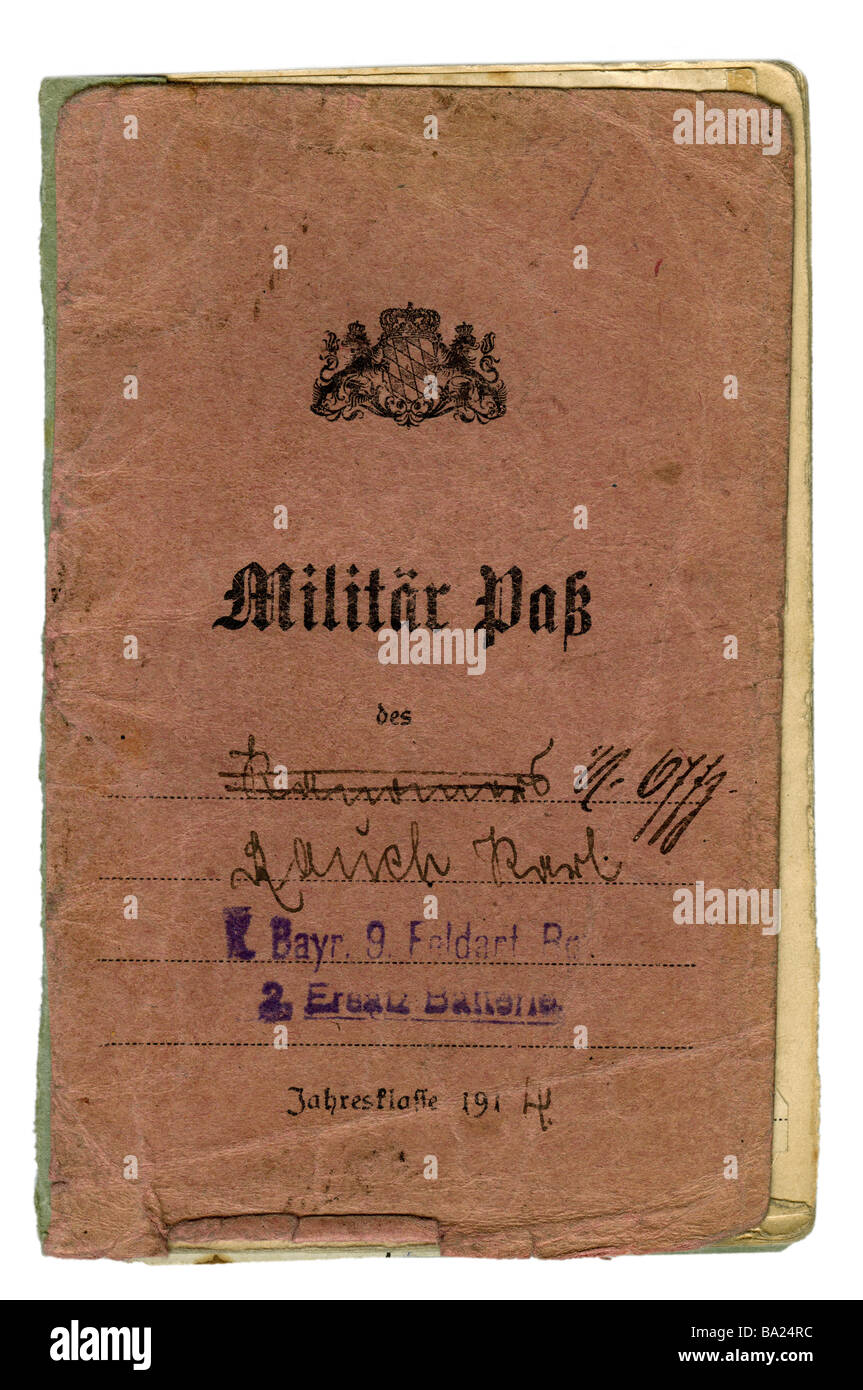 Militär Paß
des
Rauch Karl.
K. Bayr. 9. Feldart. Rg.
2. Ersatz Batterie.
Jahresklasse 1914.
alamy
alamy
alamy
a a a a a a a a a a a a a a a a
alamy
Image ID: BA24RC
www.alamy.com